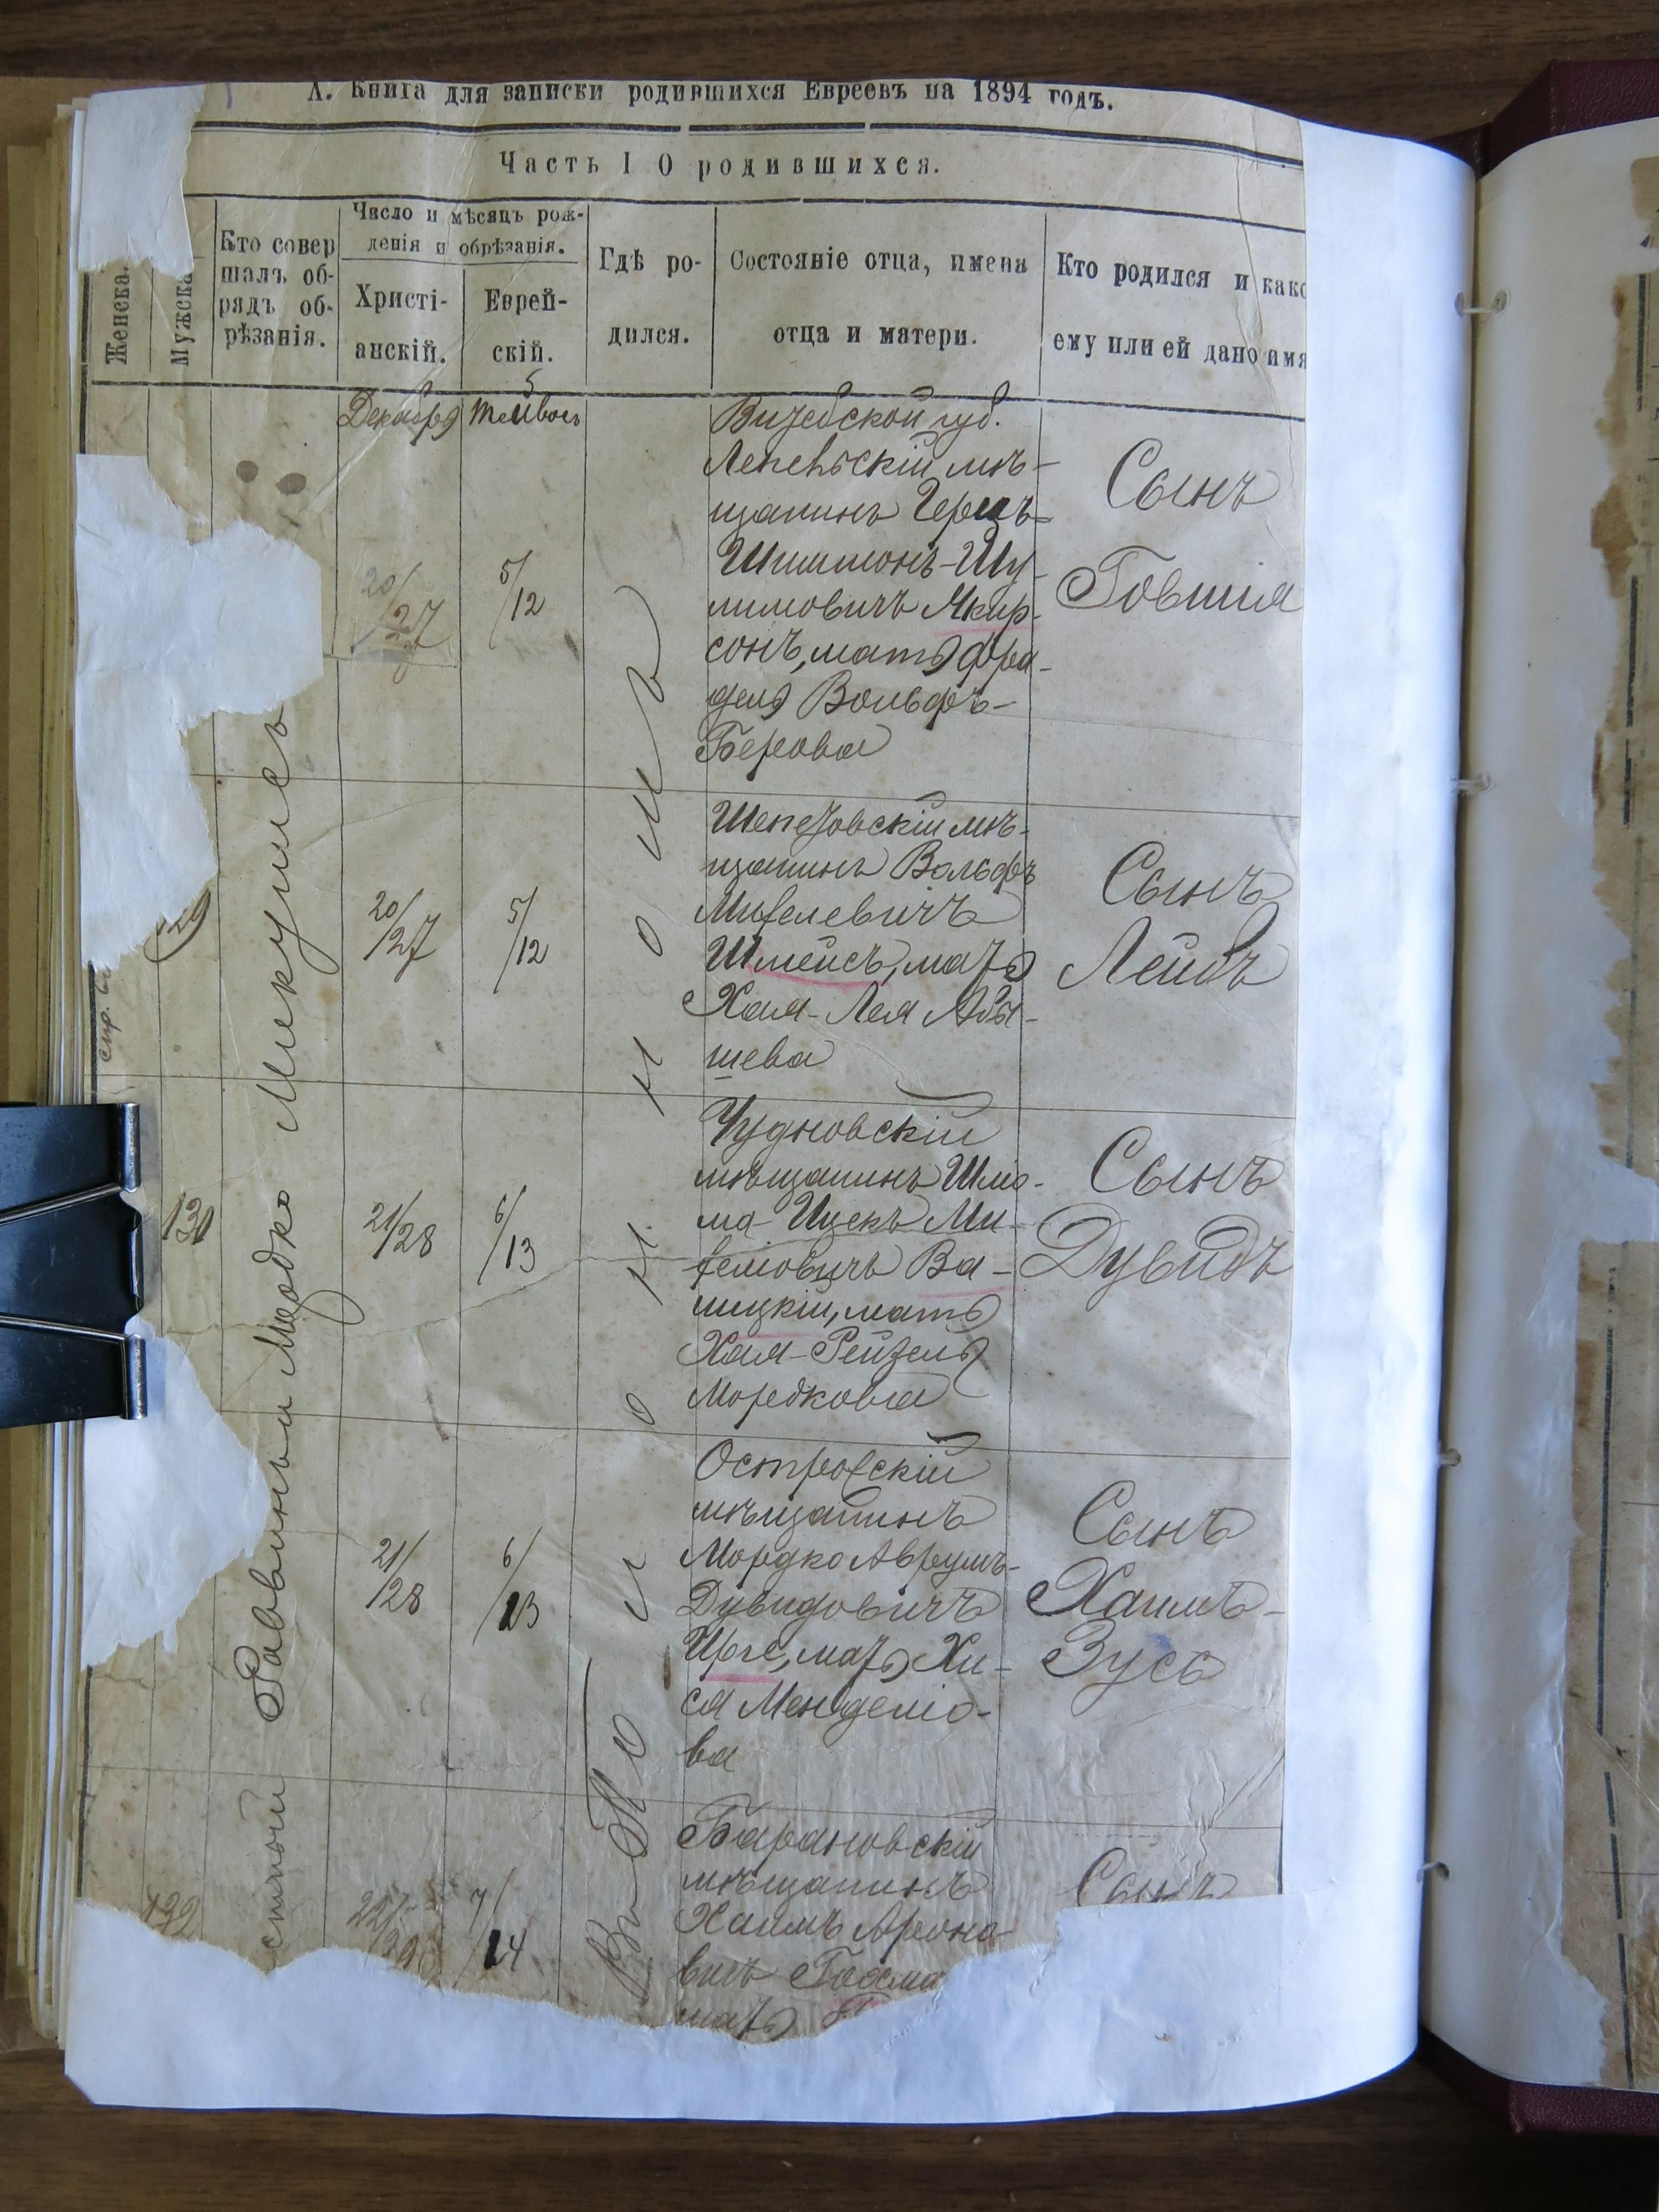 А. Книга для записки родившихся Евреевъ на 1894 годъ.
Часть I О родившихся.
Женска.
Мужска
Кто совер
шалъ об-
рядъ об-
рѣзанія.
Число и мѣсяцъ рож-
денія и обрѣзанія.
Христі-
анскій.
Еврей-
скій.
Гдѣ ро-
дился.
Состояніе отца, имена
отца и матери.
Кто родился и како
ему или ей дано имя
Декабря
Тейвесъ
20/27
5/12
Витебской губ.
Лепельскій мѣ-
щанинъ Герцъ-
Шиммонъ-Шу-
лимовичъ
сонъ, мать Фра-
дель Вольфъ-
Берова
Сынъ
Говшія
129
20/27
5/12
Шепетовскій мѣ-
щанинъ Вольфъ
Михелевичъ
Шмейсъ, мать
Хая-Лея Абы-
шева
Сынъ
Лейбъ
130
21/28
6/13
Чудновскій
мѣщанинъ Шлё-
ма-Ицекъ Ми-
хелёвичъ Ва-
лицкій, мать
Хая-Рейзель
Мордкова
Сынъ
Дувидъ
21/28
6/13
Островскій
мѣщанинъ
Мордко Аврумъ-
Дувидовичъ
мать Хи-
ся Менделіо-
ва
Сынъ
Хаимъ-
Зусь
132
22/29
7/14
Барановскій
мѣщанинъ
Хаимъ Ароно-
вичъ
мать
Сынъ
Раввинъ Мордко